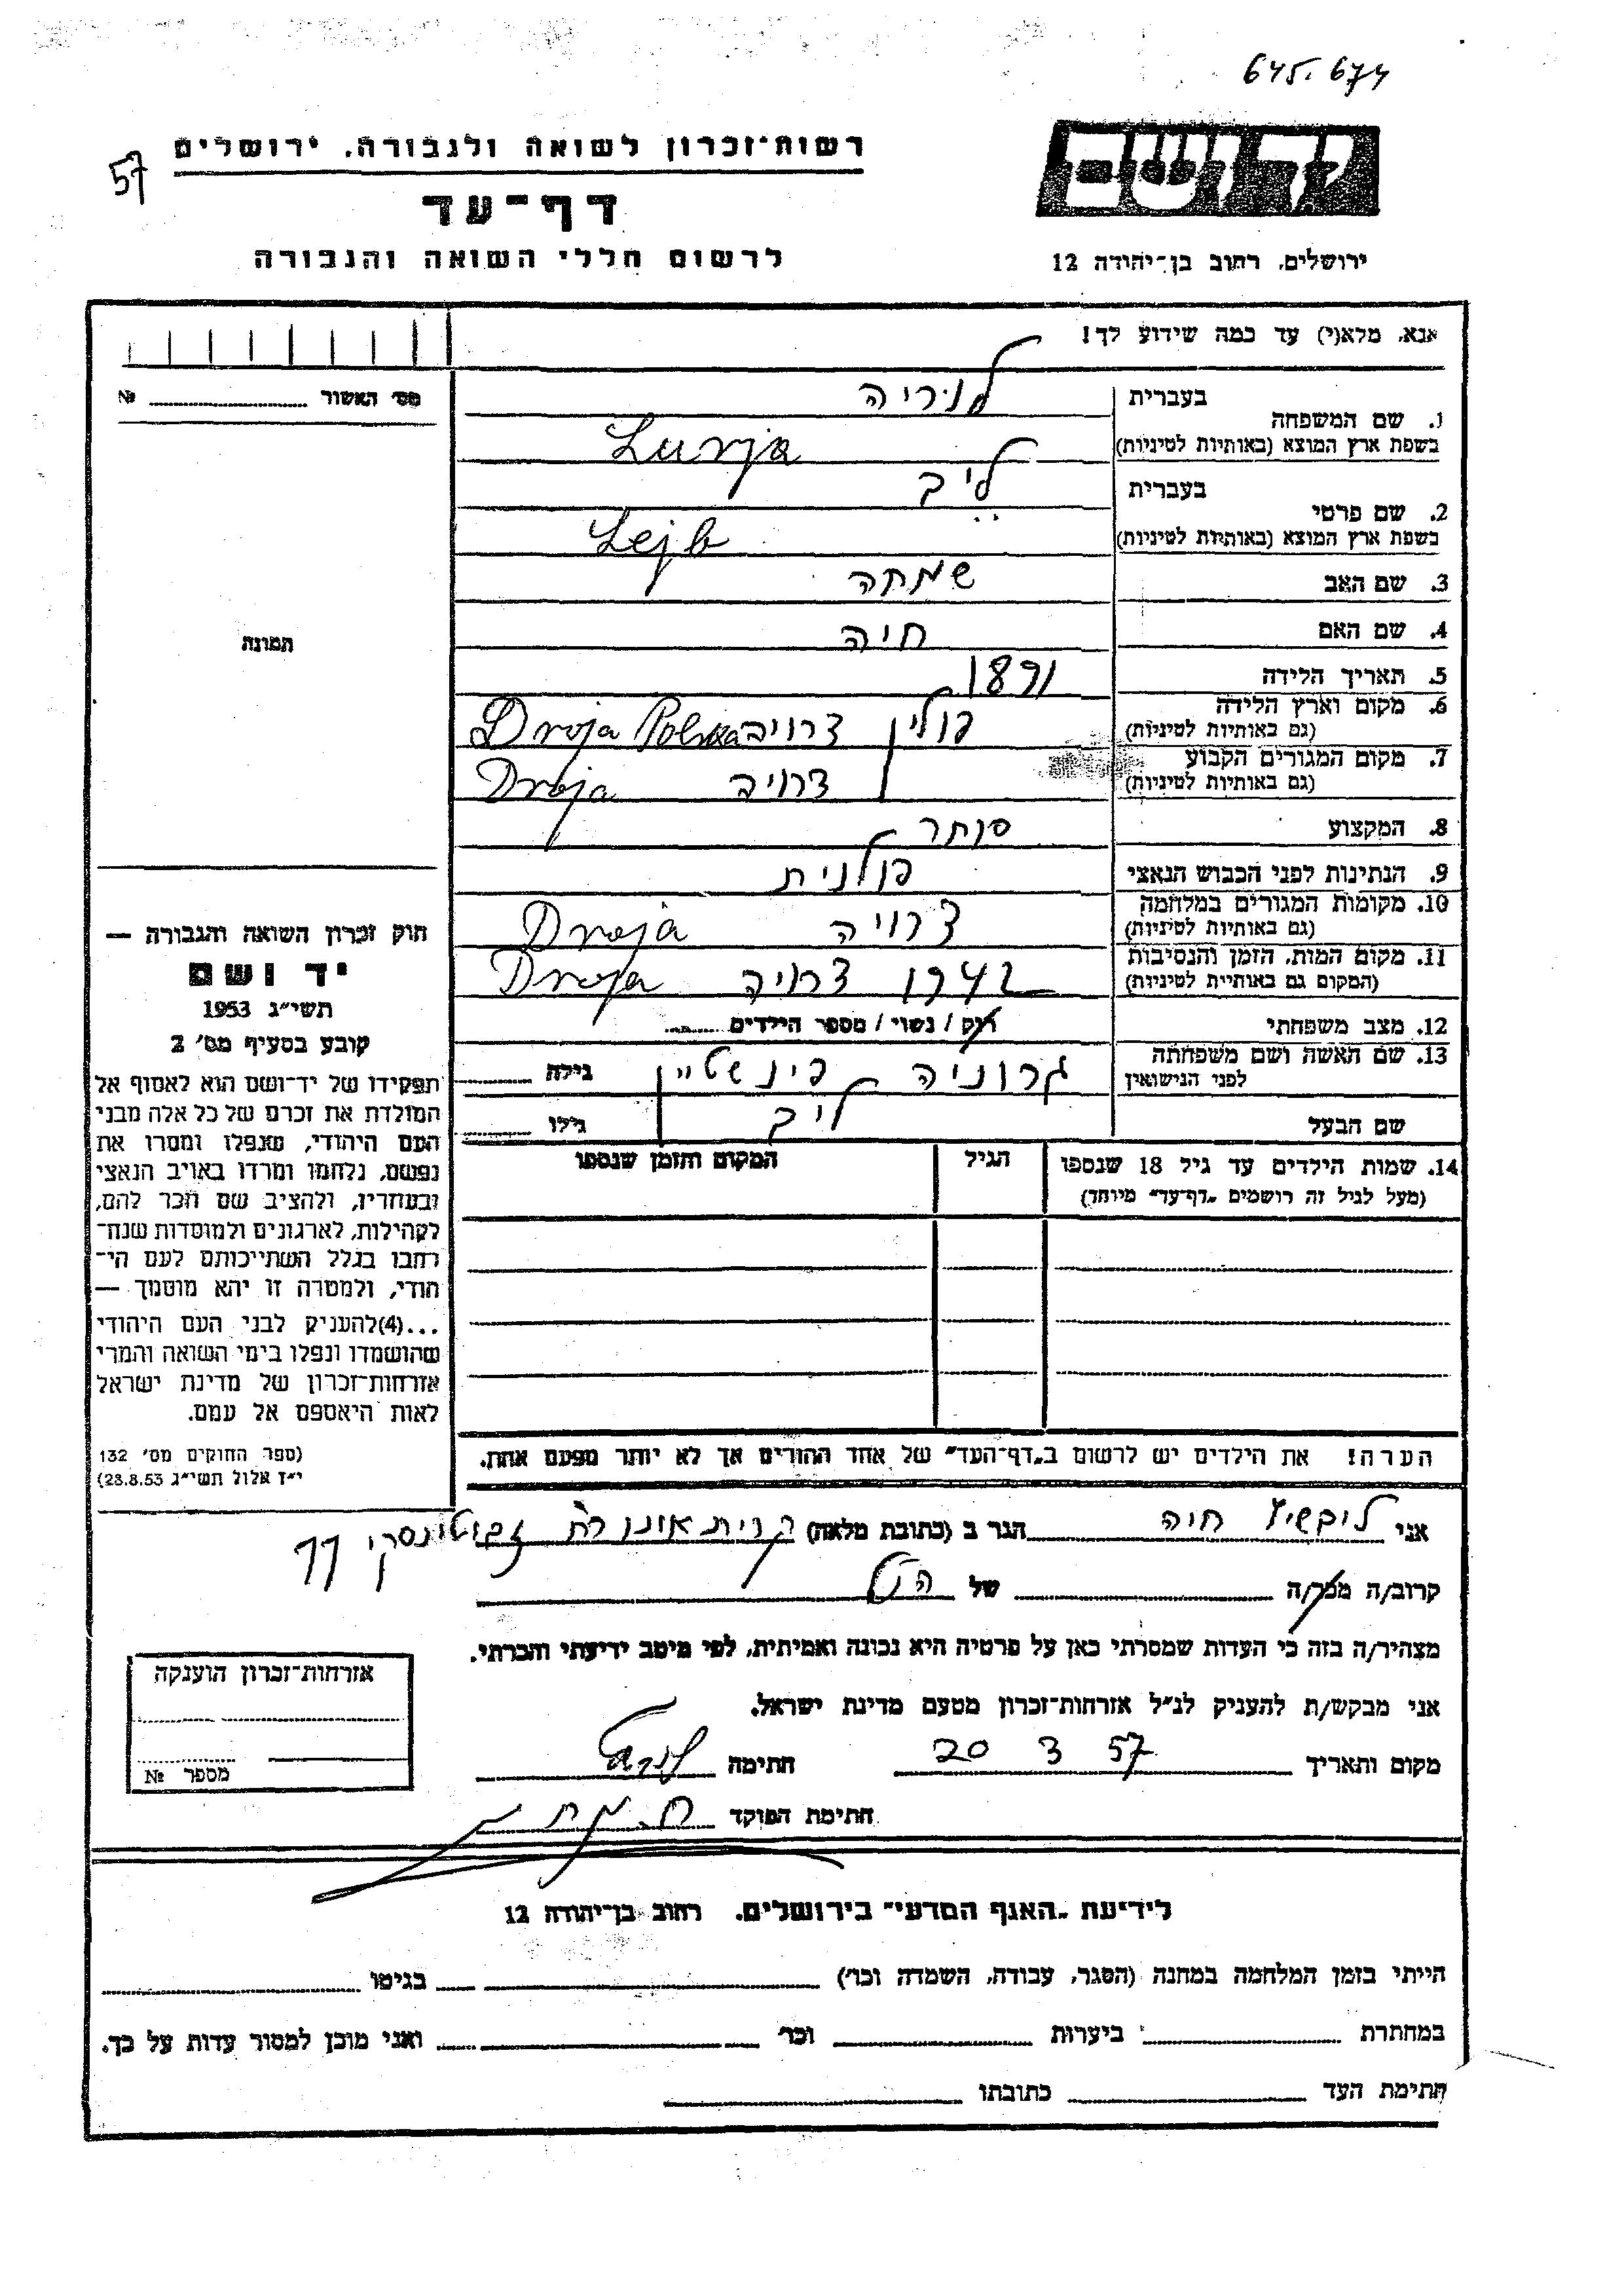 645.674
57
רשות־זכרון לשואה ולגבורה, ירושלים
דף־עד
לרשום חללי השואה והגבורה
ירושלים, רחוב בן־יהודה 12
אנא, מלא(י) עד כמה שידוע לך!
מס׳ האשור № 
1. שם המשפחה בעברית לוריה
בשפת ארץ המוצא (באותיות לטיניות) Lurja
2. שם פרטי בעברית לייב
בשפת ארץ המוצא (באותיות לטיניות) Lejb
3. שם האב שמחה
4. שם האם חיה
5. תאריך הלידה 1891
6. מקום וארץ הלידה (גם באותיות לטיניות) פולין דרויה Droja Polska
7. מקום המגורים הקבוע (גם באותיות לטיניות) דרויה Droja
8. המקצוע סוחר
9. הנתינות לפני הכבוש הנאצי פולנית
10. מקומות המגורים במלחמה (גם באותיות לטיניות) דרויה Droja
11. מקום המות, הזמן והנסיבות (המקום גם באותיות לטיניות) 1942 דרויה Droja
12. מצב משפחתי רוק / נשוי / מספר הילדים
13. שם האשה ושם משפחתה לפני הנישואין גרוניה פינשטיין גילה
שם הבעל לייב גילו
14. שמות הילדים עד גיל 18 שנספו הגיל המקום והזמן שנספו
(מעל לגיל זה רושמים „דף־עד" מיוחד)
הערה! את הילדים יש לרשום ב„דף־העד" של אחד ההורים אך לא יותר מפעם אחת.
תמונה
חוק זכרון השואה והגבורה —
יד ושם
תשי״ג 1953
קובע בסעיף מס׳ 2
תפקידו של יד־ושם הוא לאסוף אל
המולדת את זכרם של כל אלה מבני
העם היהודי, שנפלו ומסרו את
נפשם, נלחמו ומרדו באויב הנאצי
ובעוזריו, ולהציב שם וזכר להם,
לקהילות, לארגונים ולמוסדות שנח־
רבו בגלל השתייכותם לעם הי־
הודי, ולמטרה זו יהא מוסמך —
...(4)להעניק לבני העם היהודי
שהושמדו ונפלו בימי השואה והמרי
אזרחות־זכרון של מדינת ישראל
לאות היאספם אל עמם.
(ספר החוקים מס׳ 132
י״ז אלול תשי״ג 28.8.53)
אני ליבשיץ חיה הגר ב (כתובת מלאה) קרית אונו רח׳ ז׳בוטינסקי 77
קרוב/ה מכר/ה של הנ״ל
מצהיר/ה בזה כי העדות שמסרתי כאן על פרטיה היא נכונה ואמיתית, לפי מיטב ידיעתי והכרתי.
אני מבקש/ת להעניק לנ״ל אזרחות־זכרון מטעם מדינת ישראל.
מקום ותאריך 20 3 57 חתימה
חתימת הפוקד
אזרחות־זכרון הוענקה
מספר №
לידיעת „האגף המדעי" בירושלים, רחוב בן־יהודה 12
הייתי בזמן המלחמה במחנה (הסגר, עבודה, השמדה וכו׳) בגיטו
במחתרת ביערות וכו׳ ואני מוכן למסור עדות על כך.
חתימת העד כתובתו